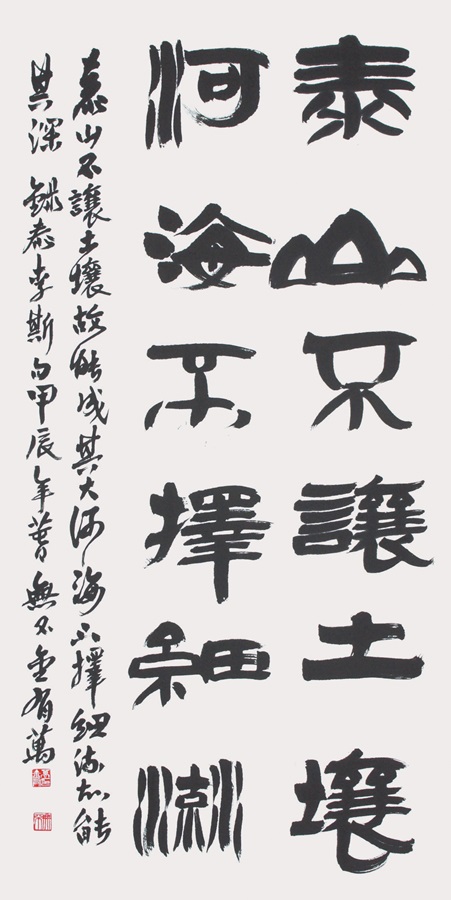 泰山不讓土壤
河海不擇細流
泰山不讓土壤故能成其大河海不擇細流故能
其深 錄秦李斯句甲辰年 金有萬